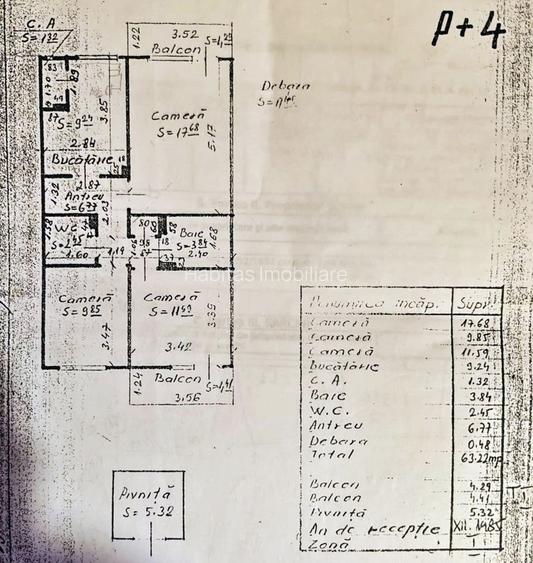 P+4
C. A
S=1,32
1.22
3.52
Balcon
S=4,29
Debara
S=0,48
83
1.70
1.89
3.85
S=9,24
2.84
Bucătărie
Cameră
S=17,68
5.17
1.22
2.87
Antreu
S=6,77
2.03
W.C.
S=2,45
1.58
1.60
1.19
80
58
98
18
37
Baie
S=3,84
2.40
1.68
Habitas Imobiliare
Cameră
S=9,85
3.47
Cameră
S=11,59
3.39
3.42
1.24
Balcon
S=4,41
3.56
Pivniță
S=5.32
Denumirea încăp. Supr.
Cameră 17.68
Cameră 9.85
Cameră 11.59
Bucătărie 9.24
C. A. 1.32
Baie 3.84
W.C. 2.45
Antreu 6.77
Debara 0.48
Total 63.22mp
Balcon 4.29
Balcon 4.41
Pivniță 5.32
An de recepție XII.1985
Zonă I